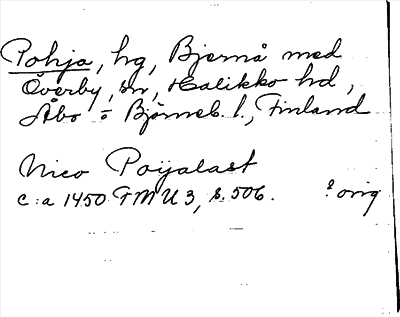 Pohja, hg, Bjernå med
Överby, sn, Halikko hd,
Åbo o Björneb. l., Finland
Nico Poyalast
c:a 1450 FMU 3, s. 506. ? orig